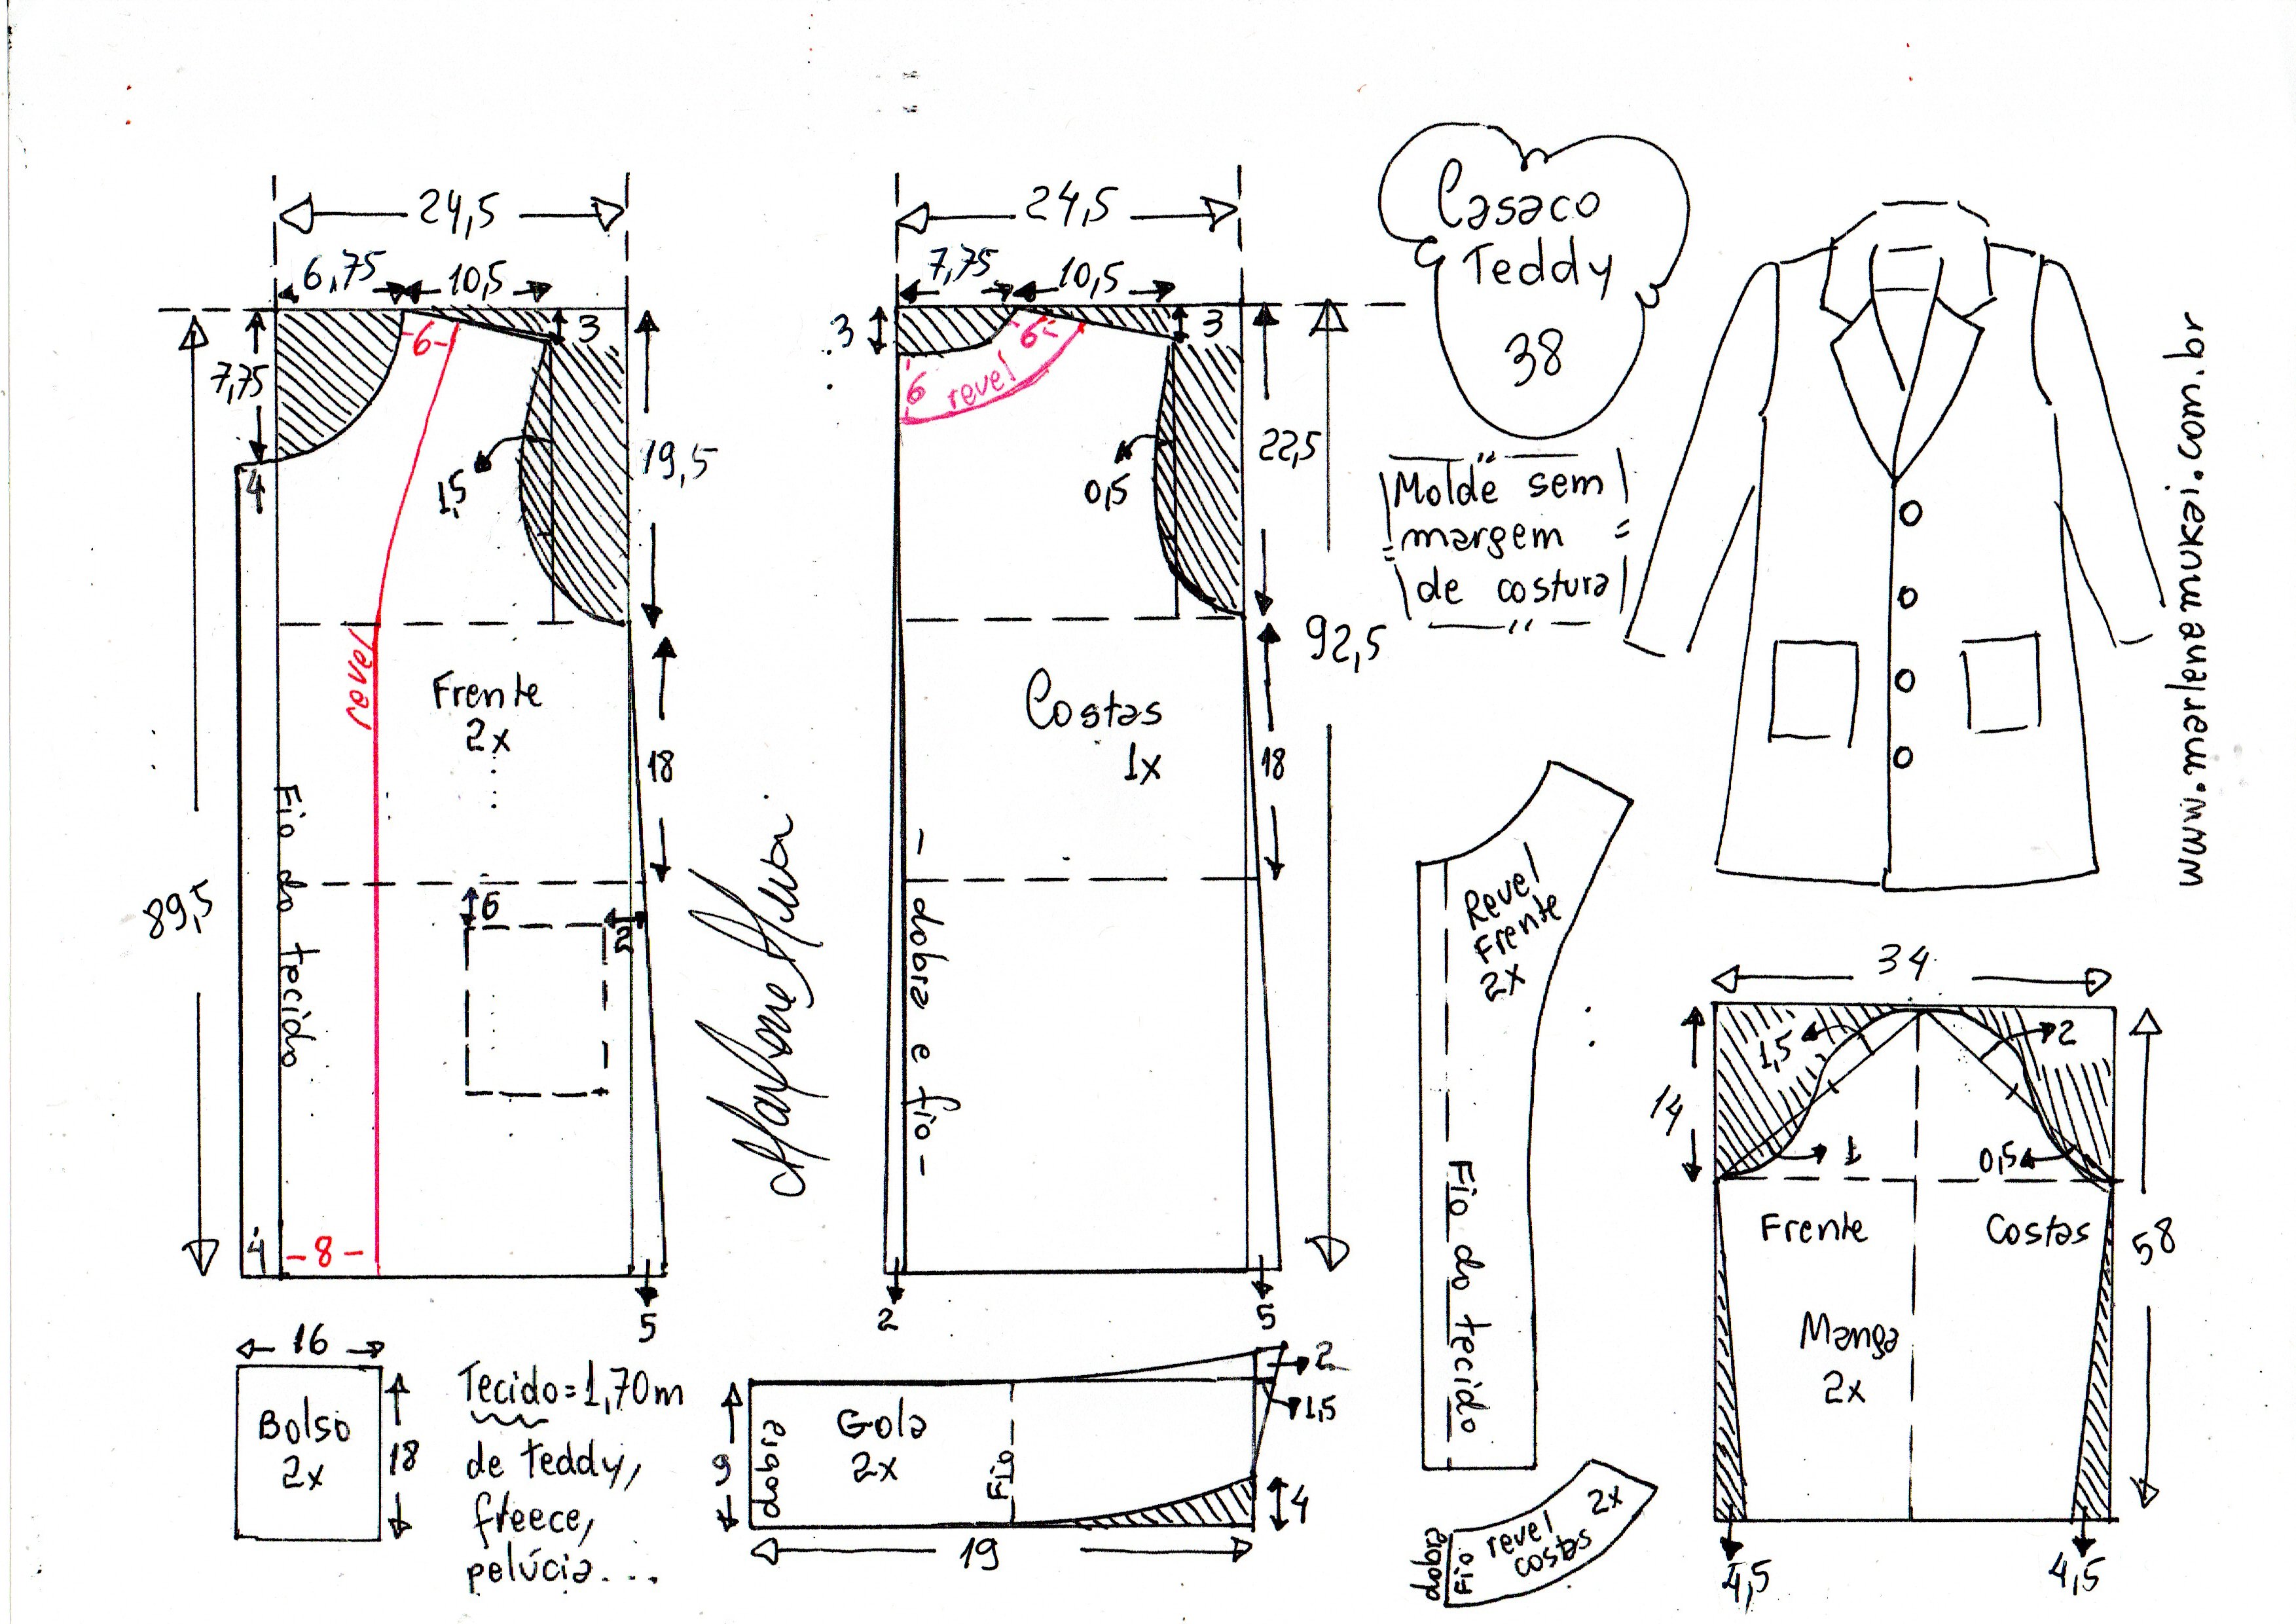 24,5
6,75
10,5
3
7,75
-6-
4
1,5
19,5
revel
Frente
2x
18
Fio do tecido
89,5
6
2
4
-8-
5
24,5
7,75
10,5
3
3
6
6
revel
0,5
22,5
92,5
Costas
1x
18
- dobra e fio -
2
5
Casaco
Teddy
38
Molde sem
margem
de costura
www.marlenemukai.com.br
Revel
Frente
2x
Fio do tecido
34
1,5
2
14
1
0,5
Frente
Costas
58
Manga
2x
4,5
4,5
16
Bolso
2x
18
Tecido=1,70m
de teddy,
freece,
pelúcia...
9
dobra
Gola
2x
Fio
2
1,5
4
19
dobra
Fio
revel
costas
2x